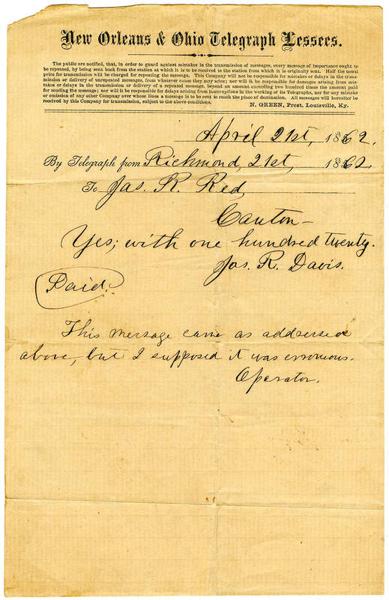 New Orleans & Ohio Telegraph Lessees.
The public are notified, that, in order to guard against mistakes in the transmission of messages, every message of importance ought to
be repeated, by being sent back from the station at which it is to be received to the station from which it is originally sent. Half the usual
price for transmission will be charged for repeating the message. This Company will not be responsible for mistakes or delays in the trans-
mission or delivery of unrepeated messages, from whatever cause they may arise; nor will it be responsible for damages arising from mis-
takes or delays in the transmission or delivery of a repeated message, beyond an amount exceeding two hundred times the amount paid
for sending the message; nor will it be responsible for delays arising from interruptions in the working of its Telegraphs, nor for any mistake
or omission of any other Company over whose lines a message is to be sent to reach the place of destination. All messages will hereafter be
received by this Company for transmission, subject to the above conditions.
N. GREEN, Prest, Louisville, Ky.
April 21st, 1862.
By Telegraph from Richmond, 21st, 1862
To Jas. R. Red,
Canton—
Yes; with one hundred twenty.
Jos. R. Davis.
Paid.
This message came as addressed
above, but I supposed it was erroneous.
Operator.